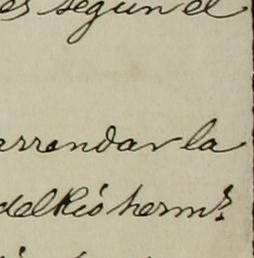 es segun el
arrendar la
del Rio herms.